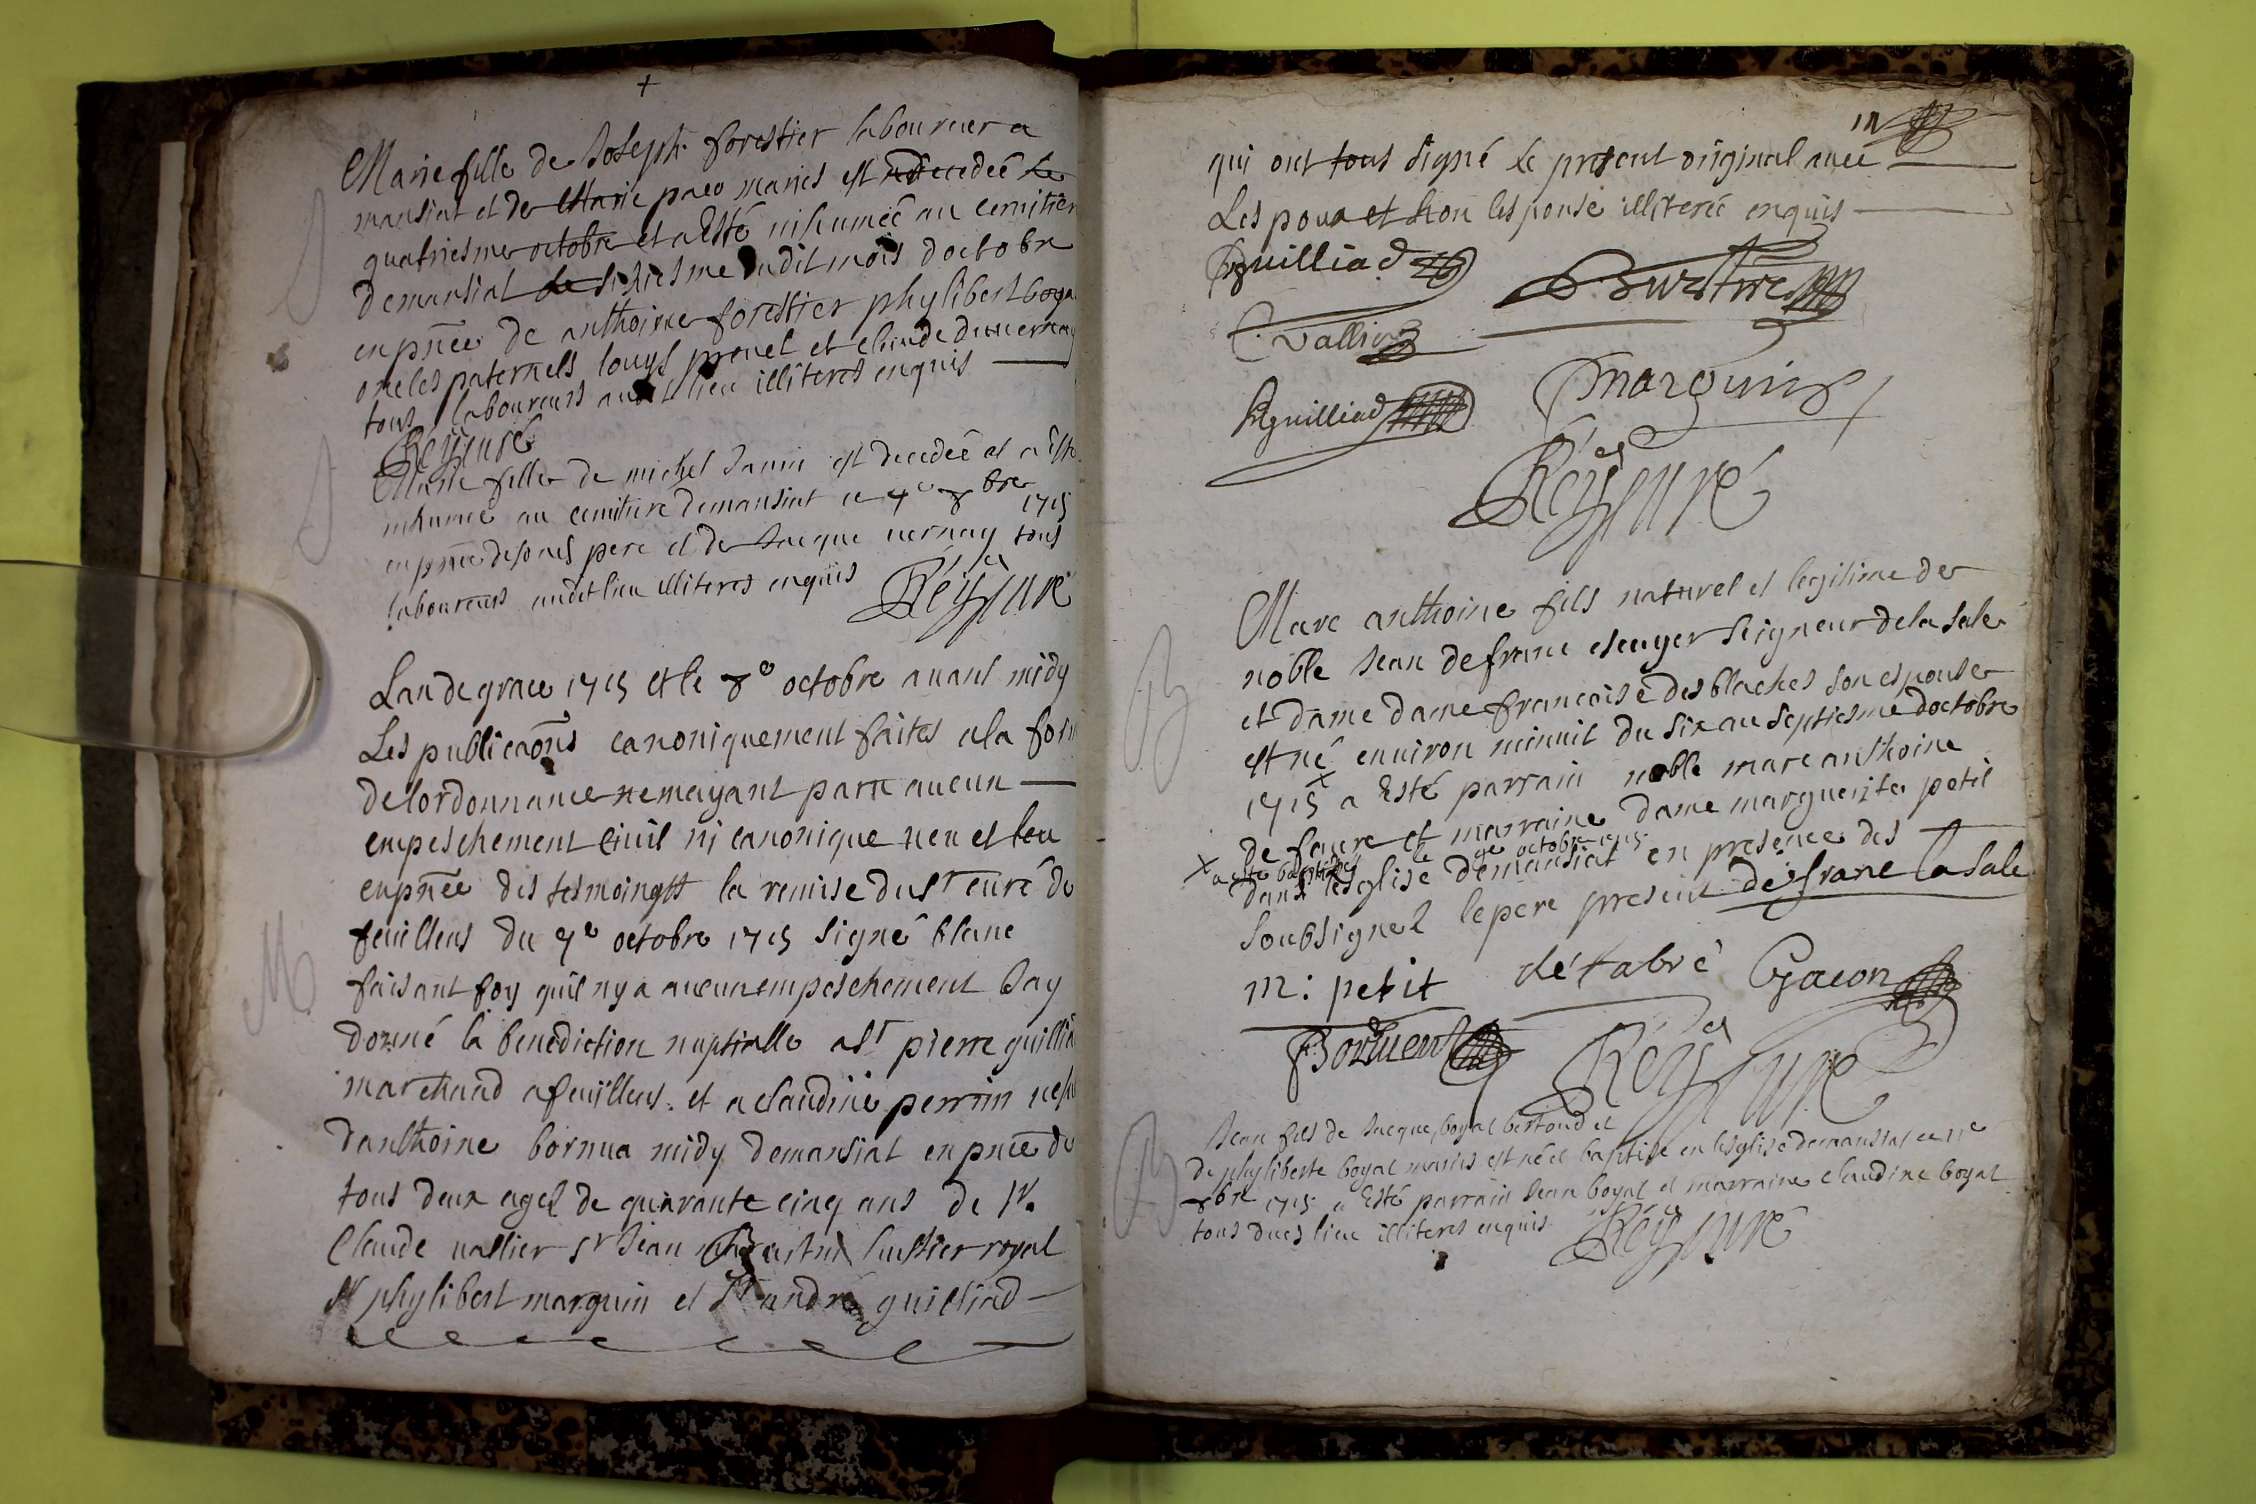 +
Marie fille de Joseph forestier laboureur a
mansiat et de Marie paco mariés est decedeé le
quatriesme octobre et a Esté inhumeé au cemitier
demansiat le sixiesme dudit mois doctobre
enpñce de anthoine forestier phylibert boya
oncles paternels louys prevel et claude duvernay
tous laboureurs audit lieu illiteres enquis
Rey curé
Marie fille de michel Janin est decedeé et a Esté
inhumeé au cemitiere demansiat ce 8bre 1715
enpñce de pere et de Jacque vernay tous
laboureurs audit lieu illiteres enquis Rey curé
Lan de grace 1715 et le 8e octobre avant midy
Les publicaõns canoniquement faites ala form
delordonnance nemayant parü aucun
empeschement civil ni canonique veu et leu
enpñce des tesmoings la remise du sr curé de
feuillens du 7e octobre 1715 signé blanc
faisant foy quil ny a aucun empeschement Jay
donné la benediction nuptialle a sr pierre guillia
marchand a feuillens et a claudine perrin
danthoine bornua midy demansiat enpnce de
tous deux agez de quarante cinq ans de sr
Claude vallier sr Jean huissier royal
sr phylibert marguin et sr andré guilliad
qui ont tous signé le present original avec
Lespoux et non lespouse illitereé enquis
Pguilliad
C vallier
marguin
Aguilliad
Rey curé
Marc anthoine fils naturel et legitime de
noble Jean defranc escuyer seigneur dela sale
et dame dame francoise des blaches son espouse
est né environ minuit du six au septiesme doctobre
1715 x a Esté parrain noble marc anthoine
de favre et marraine dame marguerite petit
x a esté baptisé le 9e octobre 1715
dans lesglise demansiat en presence des
soubsignez le pere present defranc la Sale
m: petit défabré Gacon
Rey curé
Jean fils de Jacque boyal bertoud et
de phyliberte boyal mariés est né et baptisé en lesglise demansiat ce 11e
8bre 1715 a Esté parrain Jean boyal et marraine claudine boyal
tous dudt lieu illiteres enquis Rey curé